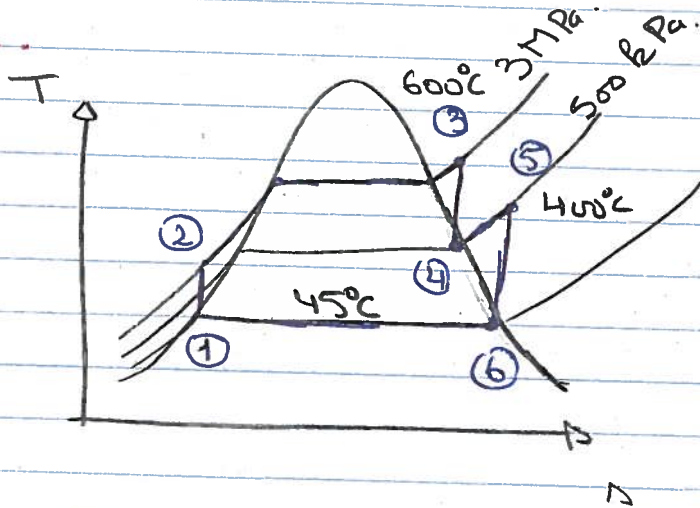 T
600°C
3 MPa.
500 kPa.
3
5
400°C
2
4
45°C
1
6
s